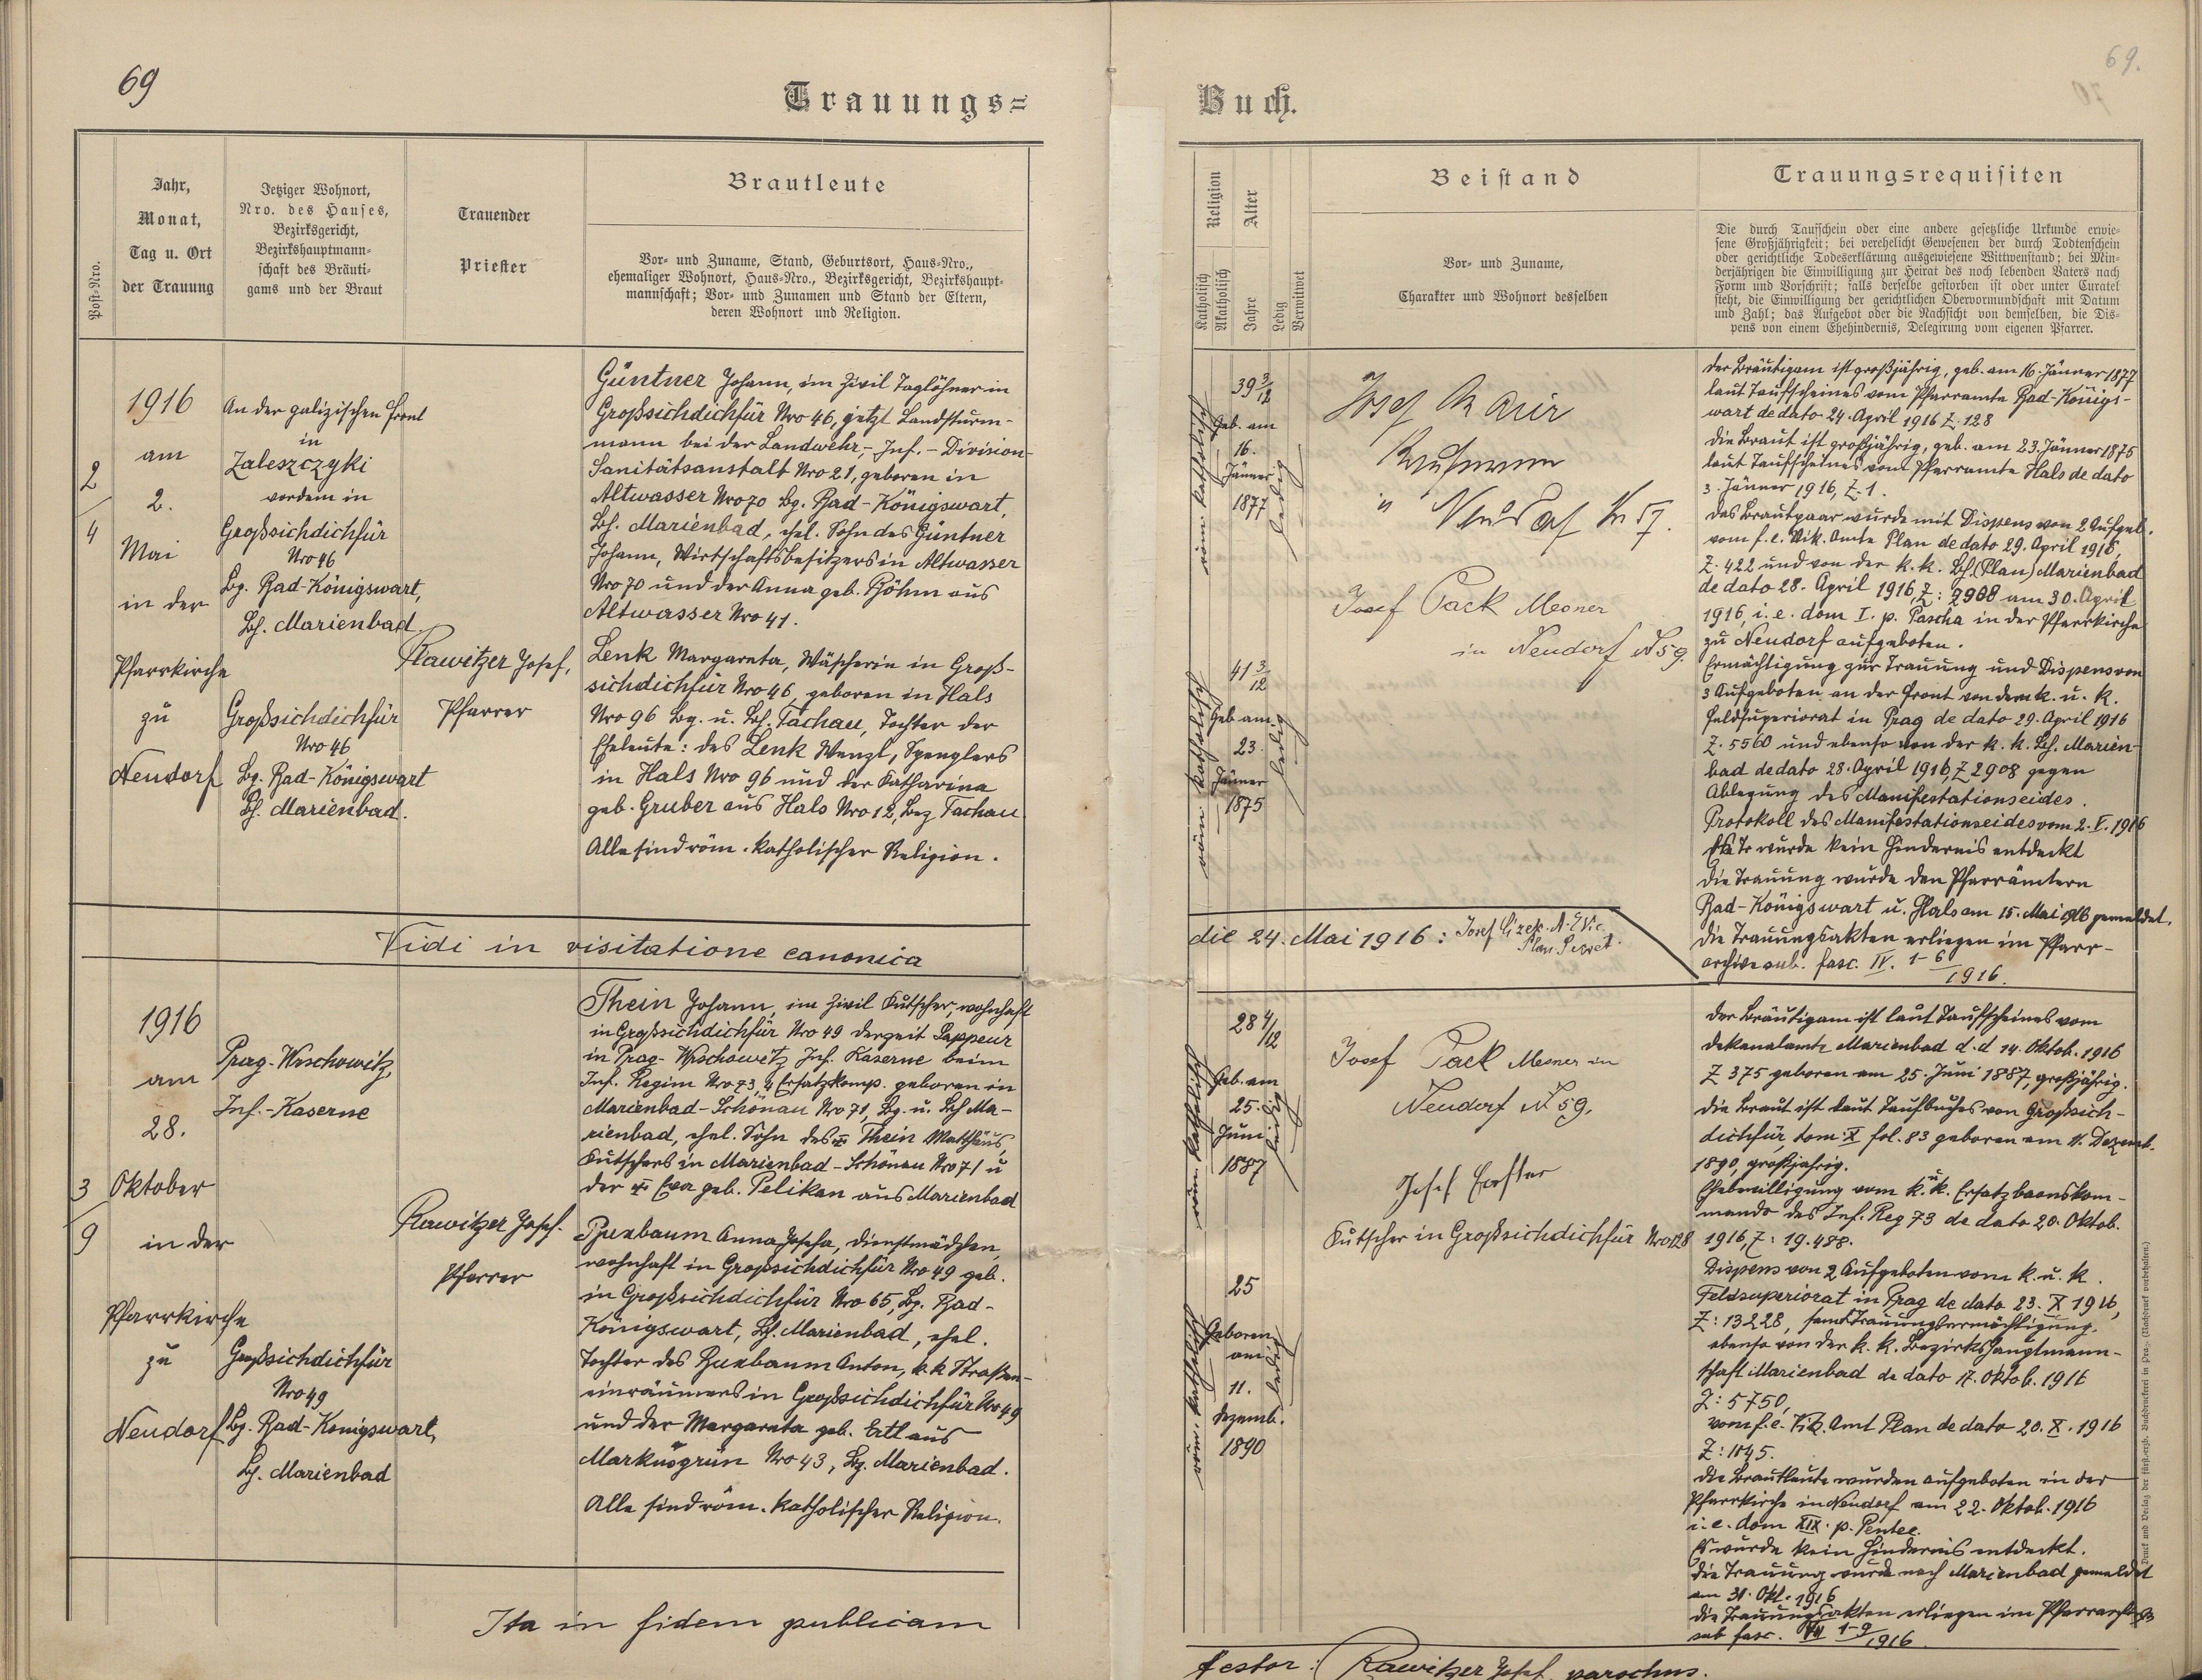 69
Trauungs=
Post-Nro.
Jahr,
Monat,
Tag u. Ort
der Trauung
Jetziger Wohnort,
Nro. des Hauses,
Bezirksgericht,
Bezirkshauptmann-
schaft des Bräuti-
gams und der Braut
Trauender
Priester
Brautleute
Vor- und Zuname, Stand, Geburtsort, Haus-Nro.,
ehemaliger Wohnort, Haus-Nro., Bezirksgericht, Bezirkshaupt-
mannschaft; Vor- und Zunamen und Stand der Eltern,
deren Wohnort und Religion.
2
4
1916
am
2.
Mai
in der
Pfarrkirche
zu
Neudorf
An der galizischen Front
in
Zaleszczyki
vordem in
Großsichdichfür
Nro 46
Bg. Bad-Königswart,
Bh. Marienbad.
Großsichdichfür
Nro 46
Bg. Bad-Königswart
Bh. Marienbad.
Rawitzer Josef,
Pfarrer
Güntner Johann, im Zivil Taglöhner in
Großsichdichfür Nro 46, jetzt Landsturm-
mann bei der Landwehr,- Inf.- Division-
Sanitätsanstalt Nro 21, geboren in
Altwasser Nro 70 Bg. Bad-Königswart,
Bh. Marienbad, ehel. Sohn des Güntner
Johann, Wirtschaftsbesitzers in Altwasser
Nro 70 und der Anna geb. Böhm aus
Altwasser Nro 41.
Lenk Margareta, Wäscherin in Groß-
sichdichfür Nro 46, geboren in Hals
Nro 96 Bg. u. Bh. Tachau, Tochter der
Eheleute: des Lenk Wenzl, Spenglers
in Hals Nro 96 und der Katharina
geb. Gruber aus Hals Nro 12, Bez. Tachau
Alle sind röm. katholischer Religion.
Vidi in visitatione canonica
3
9
1916
am
28.
Oktober
in der
Pfarrkirche
zu
Neudorf
Prag-Wrschowitz,
Inf.-Kaserne
Großsichdichfür
Nro 49
Bg. Bad-Königswart,
Bh. Marienbad
Rawitzer Josef.
Pfarrer
Thein Johann, im Zivil Kutscher, wohnhaft
in Großsichdichfür Nro 49 derzeit Sappeur
in Prag-Wrschowitz Inf. Kaserne beim
Inf. Regim Nro 73, 4 Ersatzkomp. geboren in
Marienbad-Schönau Nro 71, Bg. u. Bh Ma-
rienbad, ehel. Sohn des Thein Matthäus,
Kutschers in Marienbad-Schönau Nro 71 u
der Eva geb. Pelikan aus Marienbad
Buxbaum Anna Josefa, Dienstmädchen,
wohnhaft in Großsichdichfür Nro 49 geb.
in Großsichdichfür Nro 65, Bg. Bad-
Königswart, Bh. Marienbad, ehel.
Tochter des Buxbaum Anton, k k Straßen-
einräumers in Großsichdichfür Nro 49
und der Margareta geb. Ertl aus
Markusgrün Nro 43, Bg. Marienbad.
Alle sind röm. katholischer Religion.
Ita in fidem publicam
69.
70
Buch.
Religion
Alter
Katholisch
Akatholisch
Jahre
Ledig
Verwitwet
Beistand
Vor- und Zuname,
Charakter und Wohnort desselben
Trauungsrequisiten
Die durch Taufschein oder eine andere gesetzliche Urkunde erwie-
sene Großjährigkeit; bei verehelicht Gewesenen der durch Todtenschein
oder gerichtliche Todeserklärung ausgewiesene Wittwenstand; bei Min-
derjährigen die Einwilligung zur Heirat des noch lebenden Vaters nach
Form und Vorschrift; falls derselbe gestorben ist oder unter Curatel
steht, die Einwilligung der gerichtlichen Obervormundschaft mit Datum
und Zahl; das Aufgebot oder die Nachsicht von demselben, die Dis-
pens von einem Ehehindernis, Delegirung vom eigenen Pfarrer.
röm. katholisch
39 3/12
Geb. am
16.
Jänner
1877
ledig
Josef
in Neudorf Nr 57.
Josef Pack Mesner
in Neudorf N 59.
röm. katholisch
41 3/12
Geb am
23.
Jänner
1875
ledig
Der Bräutigam ist großjährig, geb. am 16. Jänner 1877
laut Taufscheines vom Pfarramte Bad-Königs-
wart de dato 24. April 1916 Z. 128
Die Braut ist großjährig, geb. am 23. Jänner 1875
laut Taufscheines vom Pfarramte Hals de dato
3. Jänner 1916, Z. 1.
Das Brautpaar wurde mit Dispens von 2 Aufgeb.
vom f. e. Vik. Amte Plan de dato 29. April 1916,
Z. 422 und von der k. k. Bh. (Plan) Marienbad
de dato 28. April 1916, Z: 2908 am 30. April
1916, i. e. dom I. p. Pascha in der Pfarrkirche
zu Neudorf aufgeboten.
Ermächtigung zur Trauung und Dispens von
3 Aufgeboten an der Front von dem k. u. k.
Feldsuperiorat in Prag de dato 29. April 1916
Z. 5560 und ebenso von der k. k. Bh. Marien-
bad de dato 28. April 1916, Z 2908 gegen
Ablegung des Manifestationseides.
Protokoll des Manifestationseides vom 2. V. 1916
wurde kein Hindernis entdeckt
Die Trauung wurde den Pfarrämtern
Bad-Königswart u. Hals am 15. Mai 1916 gemeldet.
Die Trauungsakten erliegen im Pfarr-
archive sub. fasc. IV. 1-6/1916.
die 24. Mai 1916: Josef
Plan.
röm. katholisch
28 4/12
Geb. am
25.
Juni
1887
ledig
Josef Pack Mesner in
Neudorf N 59.
Josef
Kutscher in Großsichdichfür Nro 128
röm. katholisch
25
Geboren
am
11.
Dezemb.
1890
ledig
Der Bräutigam ist laut Taufscheines vom
Dekanalamte Marienbad d. d 14. Oktob. 1916
Z 375 geboren am 25. Juni 1887, großjährig.
Die Braut ist laut Taufbuches von Großsich-
dichfür, tom: X fol. 83 geboren am 11. Dezemb.
1890, großjährig.
Ehebewilligung vom k. u. k. Ersatzbaonskom-
mando des Inf. Reg 73 de dato 20. Oktob.
1916, Z: 19.488.
Dispens von 2 Aufgeboten vom k. u. k.
Feldsuperiorat in Prag de dato 23. X 1916,
Z: 13228, samt Trauungsermächtigung.
ebenso von der k. k. Bezirkshauptmann-
schaft Marienbad de dato 17. Oktob. 1916
Z: 5750,
vom f. e. Vik. Amt Plan de dato 20. X. 1916
Z: 1145.
Die Brautleute wurden aufgeboten in der
Pfarrkirche in Neudorf am 22. Oktob. 1916
i. e. dom XIX. p. Pentec.
Es wurde kein Hindernis entdeckt.
Die Trauung wurde nach Marienbad gemeldet
am 31. Okt. 1916
Die Trauungsakten erliegen im Pfarrarchive
sub fasc. 1-9/1916.
testor: Rawitzer Josef, parochus.
Druck und Verlag der fürst-erzb. Buchdruckerei in Prag. (Nachdruck vorbehalten.)